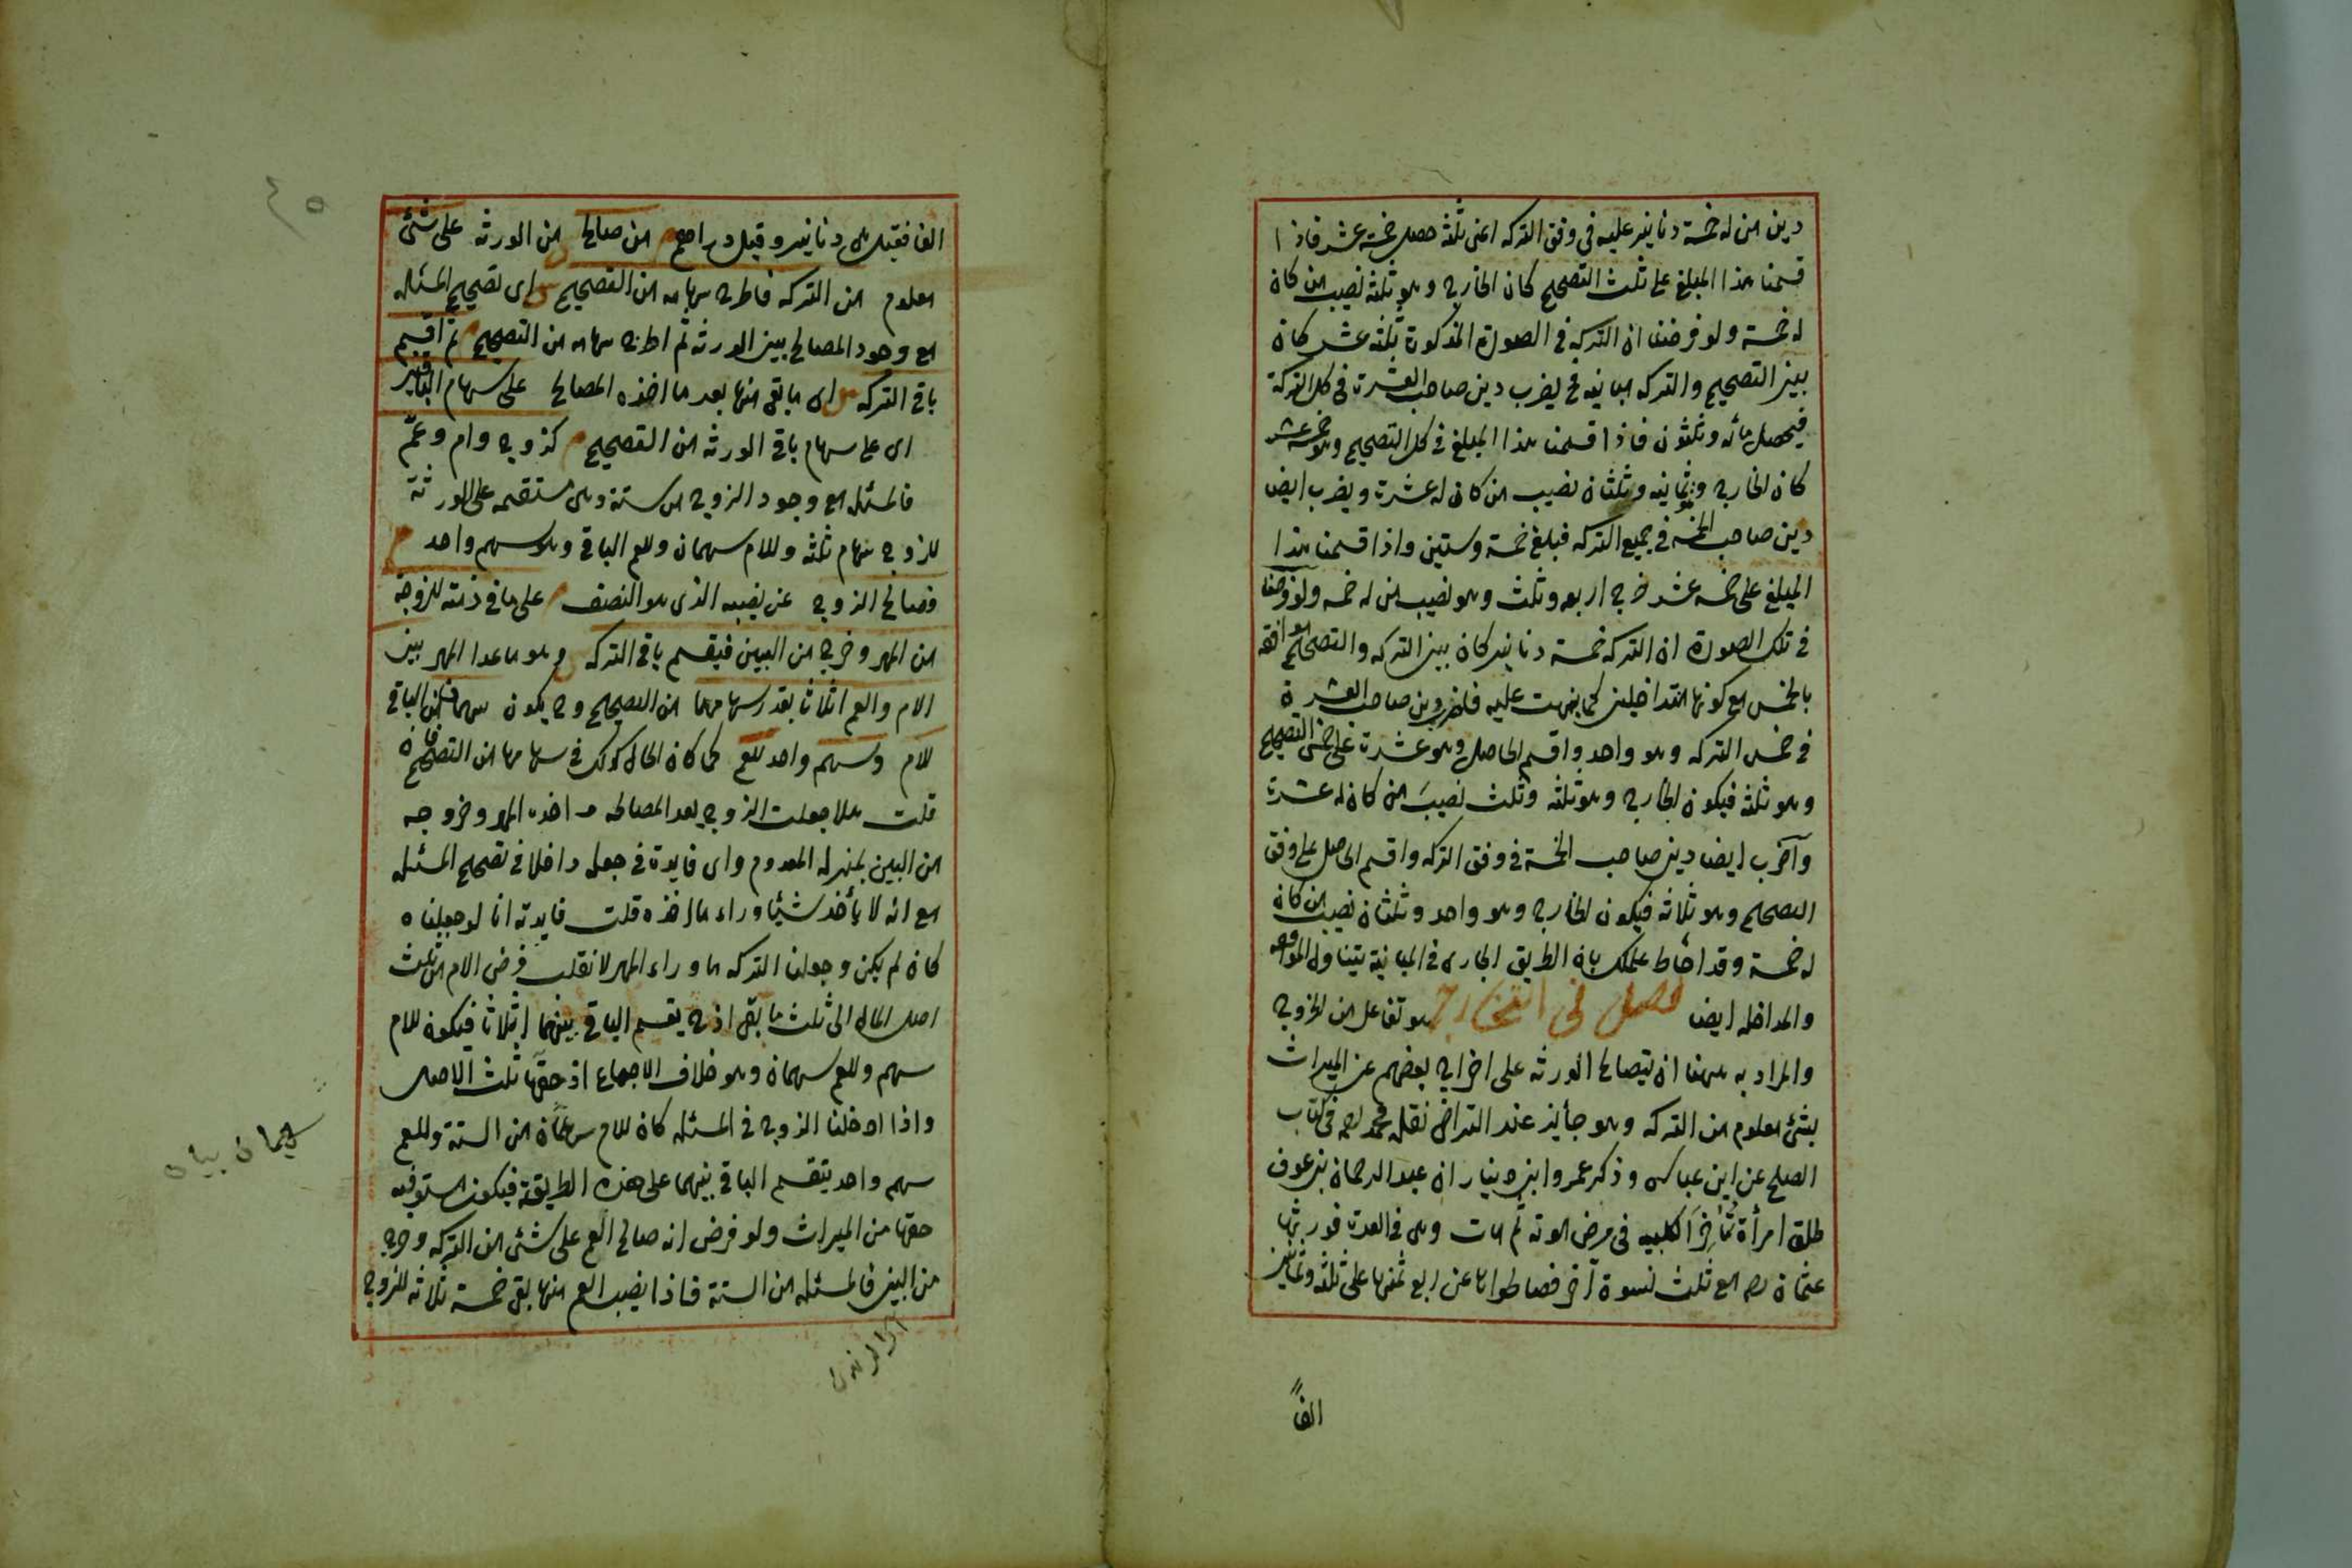 دين من له خمسة دنانير عليه في وفق التركه اعني ثلثة حصل خمسة عشر فاذا
قسمنا هذا المبلغ على ثلث التصحيح كان الخارج وهو ثلثة نصيب من كان
له خمسة ولو فرضنا ان التركه في الصورة المذكورة ثلثه عشر كان
بين التصحيح والتركه مباينه فح يضرب دين صاحب العشرة في كل التركة
فيحصل مائه وثلثون فاذا قسمنا هذا المبلغ في كل التصحيح وهو خمسة عشر
كان الخارج وهو ثمانيه وثلثان نصيب من كان له عشرة ويضرب ايضا
دين صاحب الخمسة في جميع التركه فيبلغ خمسة وستين واذا قسمنا هذا
المبلغ على خمسه عشر خرج اربعه وثلث وهو نصيب من له خمسه ولو فرضنا
في تلك الصورة ان التركه خمسة دنانير كان بين التركه والتصحيح موافقه
بالخمس مع كونها متداخلين كما نبهت عليه فاضرب دين صاحب العشرة
في خمس التركه وهو واحد واقسم الحاصل وهو عشرة على خمس التصحيح
وهو ثلثه فيكون الخارج وهو ثلثه وثلث نصيب من كان له عشرة
وآضرب ايضا دين صاحب الخمسة في وفق التركه واقسم الحاصل على وفق
التصحيح وهو ثلاثه فيكون الخارج وهو واحد وثلثان نصيب من كان
له خمسة وقد احاط علمك بان الطريق الجارى في المباينة يتناول الموافقه
والمداخله ايضا فصل في التخارج هو تفاعل من الخروج
والمراد به ههنا ان يتصالح الورثه على اخراج بعضهم عن الميراث
بشئ معلوم من التركه وهو جائز عند التراضى نقله محمد رحمه في كتاب
الصلح عن ابن عباس وذكر عمرو ابن دينار ان عبد الرحمان بن عوف
طلق امرأة تُمَاضِرَ الكلبيه في مرض موته ثم مات وهى في العدة فورثها
عثمان رضه مع ثلث نسوة آخر فصالحوها عن ربع ثمنها على ثلثة وثمانين
الفاً
الفا فقيل هى دنانير وقيل دراهم م من صالح من الورثه على شئ
معلوم من التركه فاطرح سهامه من التصحيح ش اى تصحيح المسئله
مع وجود المصالح بين الورثه ثم اطرح سهامه من التصحيح م ثم اقسم
باقى التركه ش اى ما بقى منها بعد ما اخذه المصالح على سهام الباقين
اى على سهام باقى الورثه من التصحيح م كزوج وام وعمّ
فالمسئله مع وجود الزوج من ستة وهى مستقيمه على الورثة
للزوج سهام ثلثه وللام سهمان وللعم الباقى وهو سهم واحد م
فصالح الزوج عن نصيبه الذى هو النصف م على ما في ذمته للزوجة
من المهر وخرج من البين فيقسم باقى التركه ش وهو ما عدا المهر بين
الام والعم اثلاثا بقدر سهامهما من التصحيح وح يكون سهمان من الباقى
للام وسهم واحد للعم كما كان الحال كذلك في سهامهما من التصحيح فان
قلت هلا جعلت الزوج بعد المصالحه واخذه المهر وخروجه
من البين بمنزلة المعدوم واى فايدة في جعله داخلا في تصحيح المسئله
مع انه لا يأخذ شيئا وراء ما اخذه قلت فايدته انا لو جعلناه
كان لم يكن وجعلنا التركه ما وراء المهر لانقلب فرض الام من ثلث
اصل المال الى ثلث ما بقى اذ ح يقسم الباقى بينهما اثلاثا فيكون للام
سهم وللعم سهمان وهو خلاف الاجماع اذ حقها ثلث الاصل
واذا ادخلنا الزوج في المسئله كان للام سهمان من الستة وللعم
سهم واحد يتقسم الباقى بينهما على هذه الطريقة فيكون مستوفيه
حقها من الميراث ولو فرض انه صالح العم على شئ من التركه وخرج
من البين فالمسئله من الستة فاذا نصيب العم منها بقى خمسة ثلاثه للزوج